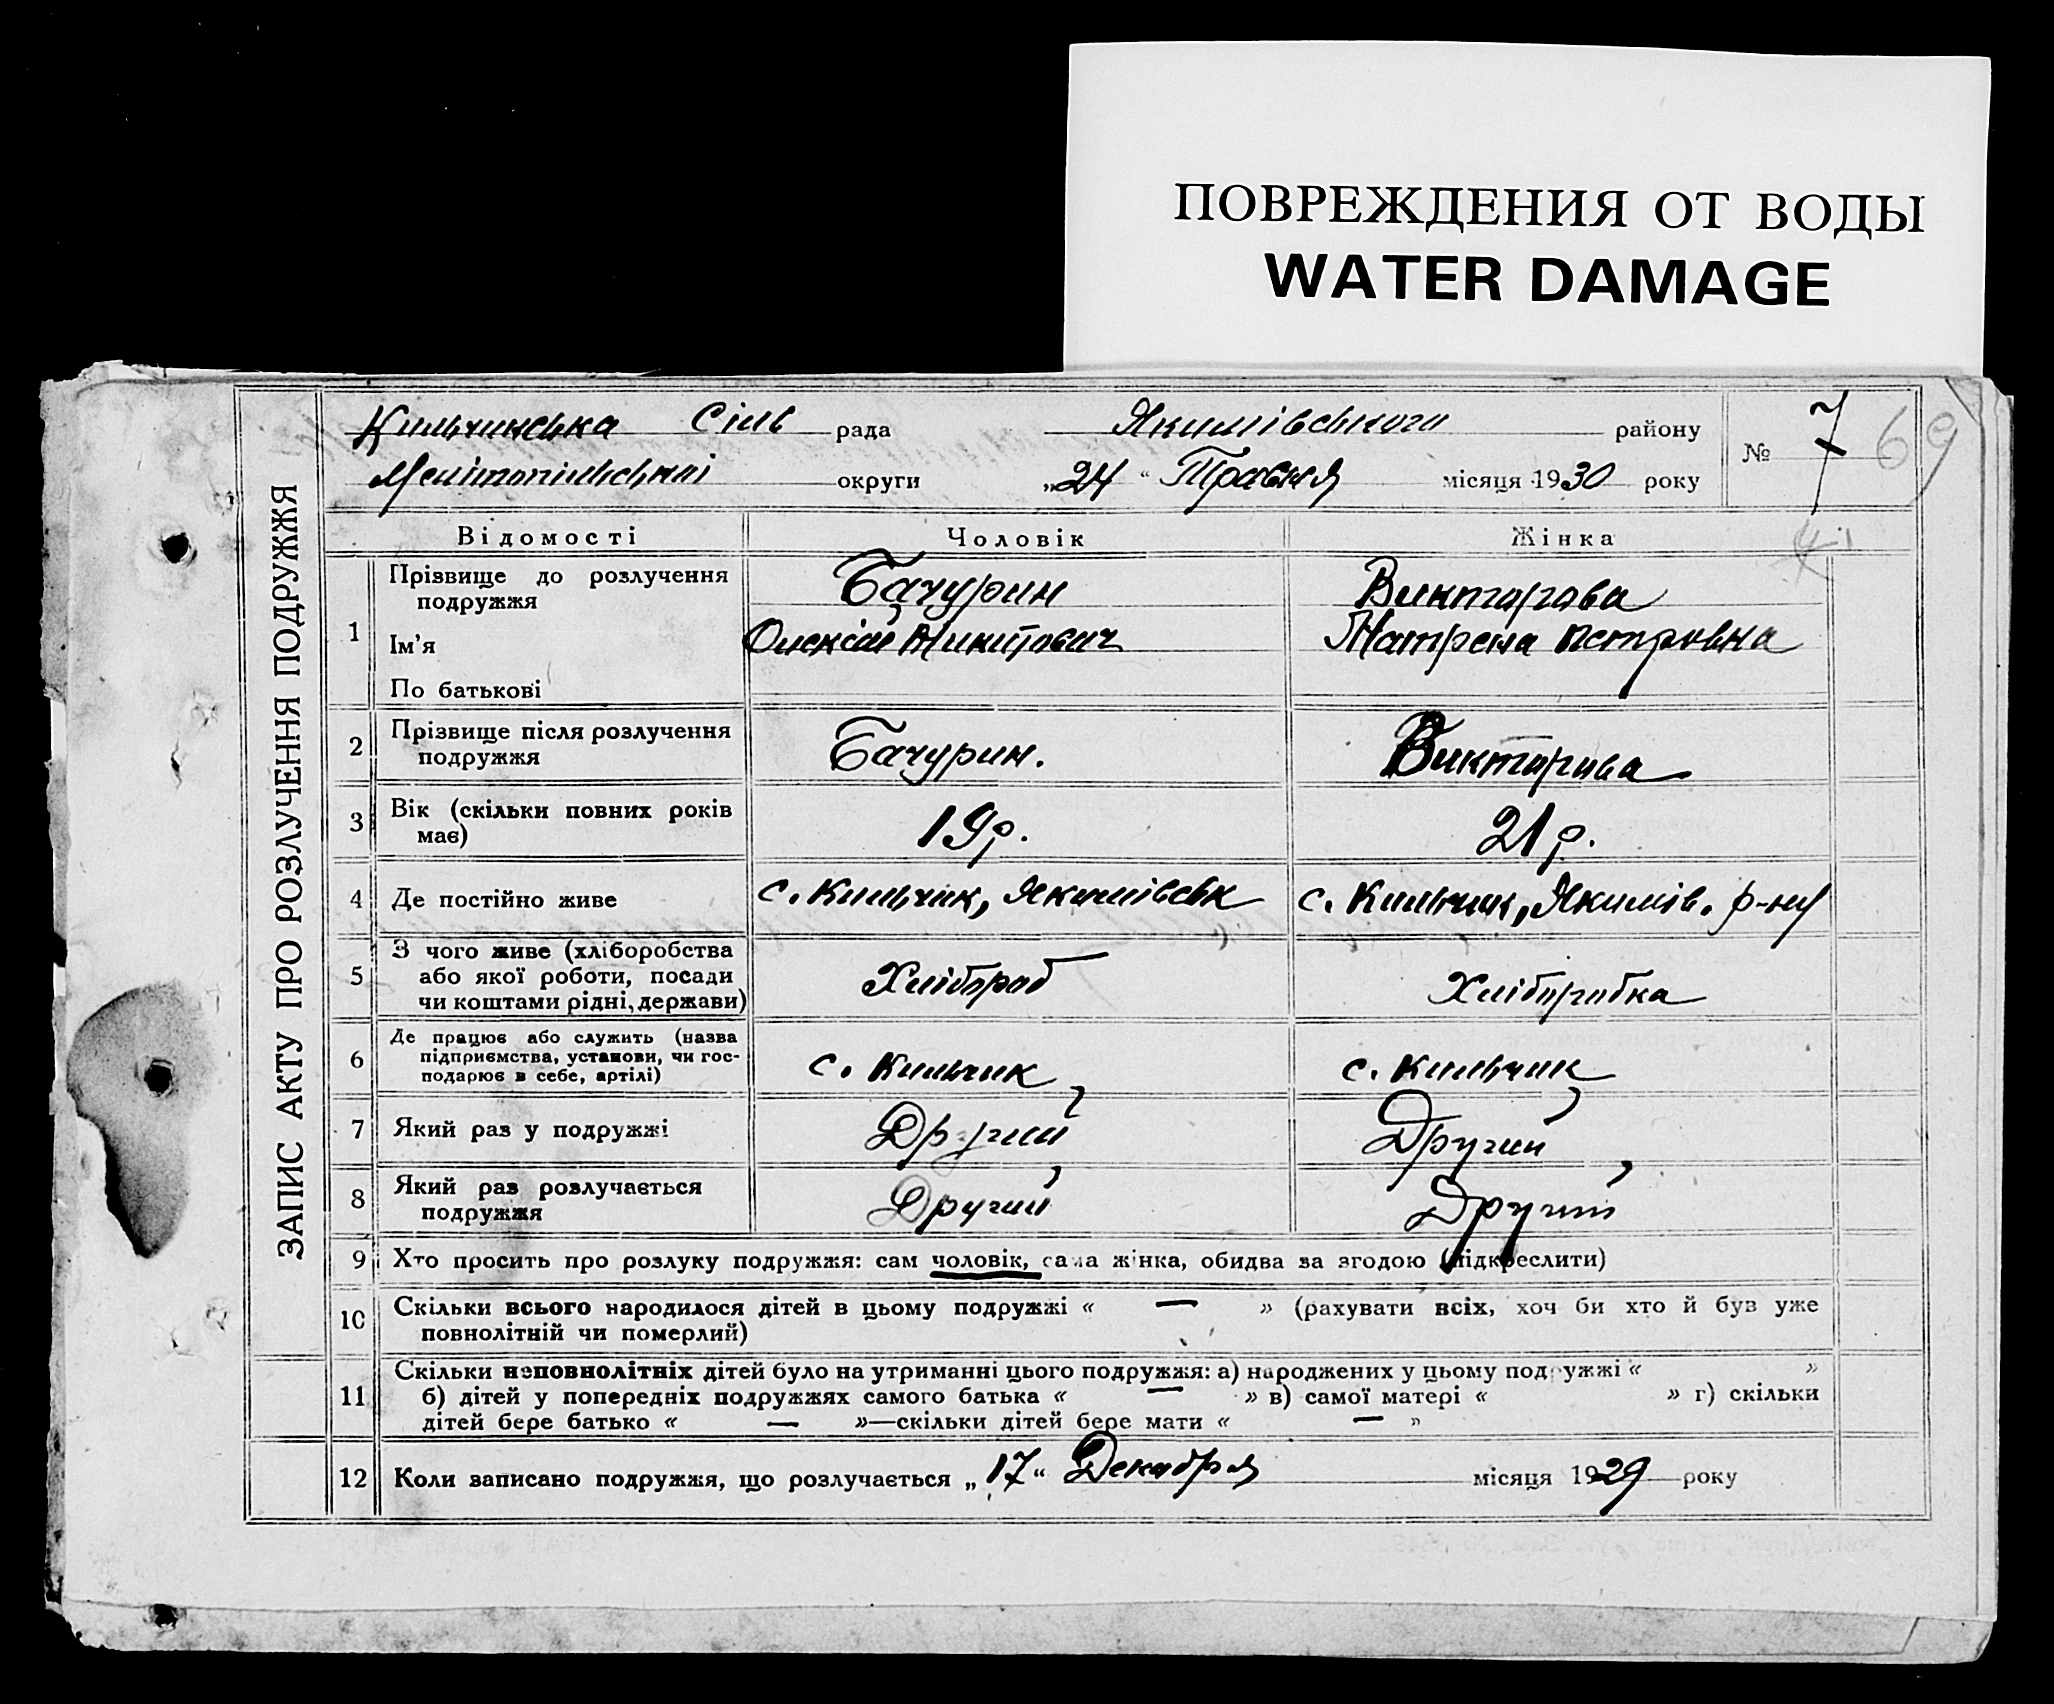 ПОВРЕЖДЕНИЯ ОТ ВОДЫ
WATER DAMAGE
ЗАПИС АКТУ ПРО РОЗЛУЧЕННЯ ПОДРУЖЖЯ
Кильчинська Сіль рада Якимівського району № 7 69
Мелітопільської округи „24“ Травня місяця 1930 року
Відомості Чоловік Жінка
1 Прізвище до розлучення подружжя Бачурин Викторова
Ім'я Олексій Микитович Матрена Петровна
По батькові
2 Прізвище після розлучення подружжя Бачурин. Викторова
3 Вік (скільки повних років має) 19 р. 21 р.
4 Де постійно живе с. Кильчик, Якимівськ с. Кильчик, Якимів. р-ну
5 З чого живе (хліборобства або якої роботи, посади чи коштами рідні, держави) Хлібороб Хлiборобка
6 Де працює або служить (назва підприємства, установи, чи господарює в себе, артілі) с. Кильчик с. Кильчик
7 Який раз у подружжі Другий Другий
8 Який раз розлучається подружжя Другий Другий
9 Хто просить про розлуку подружжя: сам чоловік, сама жінка, обидва за згодою (підкреслити)
10 Скільки всього народилося дітей в цьому подружжі « — » (рахувати всіх, хоч би хто й був уже
повнолітній чи померлий)
11 Скільки неповнолітніх дітей було на утриманні цього подружжя: а) народжених у цьому подружжі « »
б) дітей у попередніх подружжях самого батька « — » в) самої матері « » г) скільки
дітей бере батько « — »—скільки дітей бере мати « — »
12 Коли записано подружжя, що розлучається „17“ Декабря місяця 1929 року